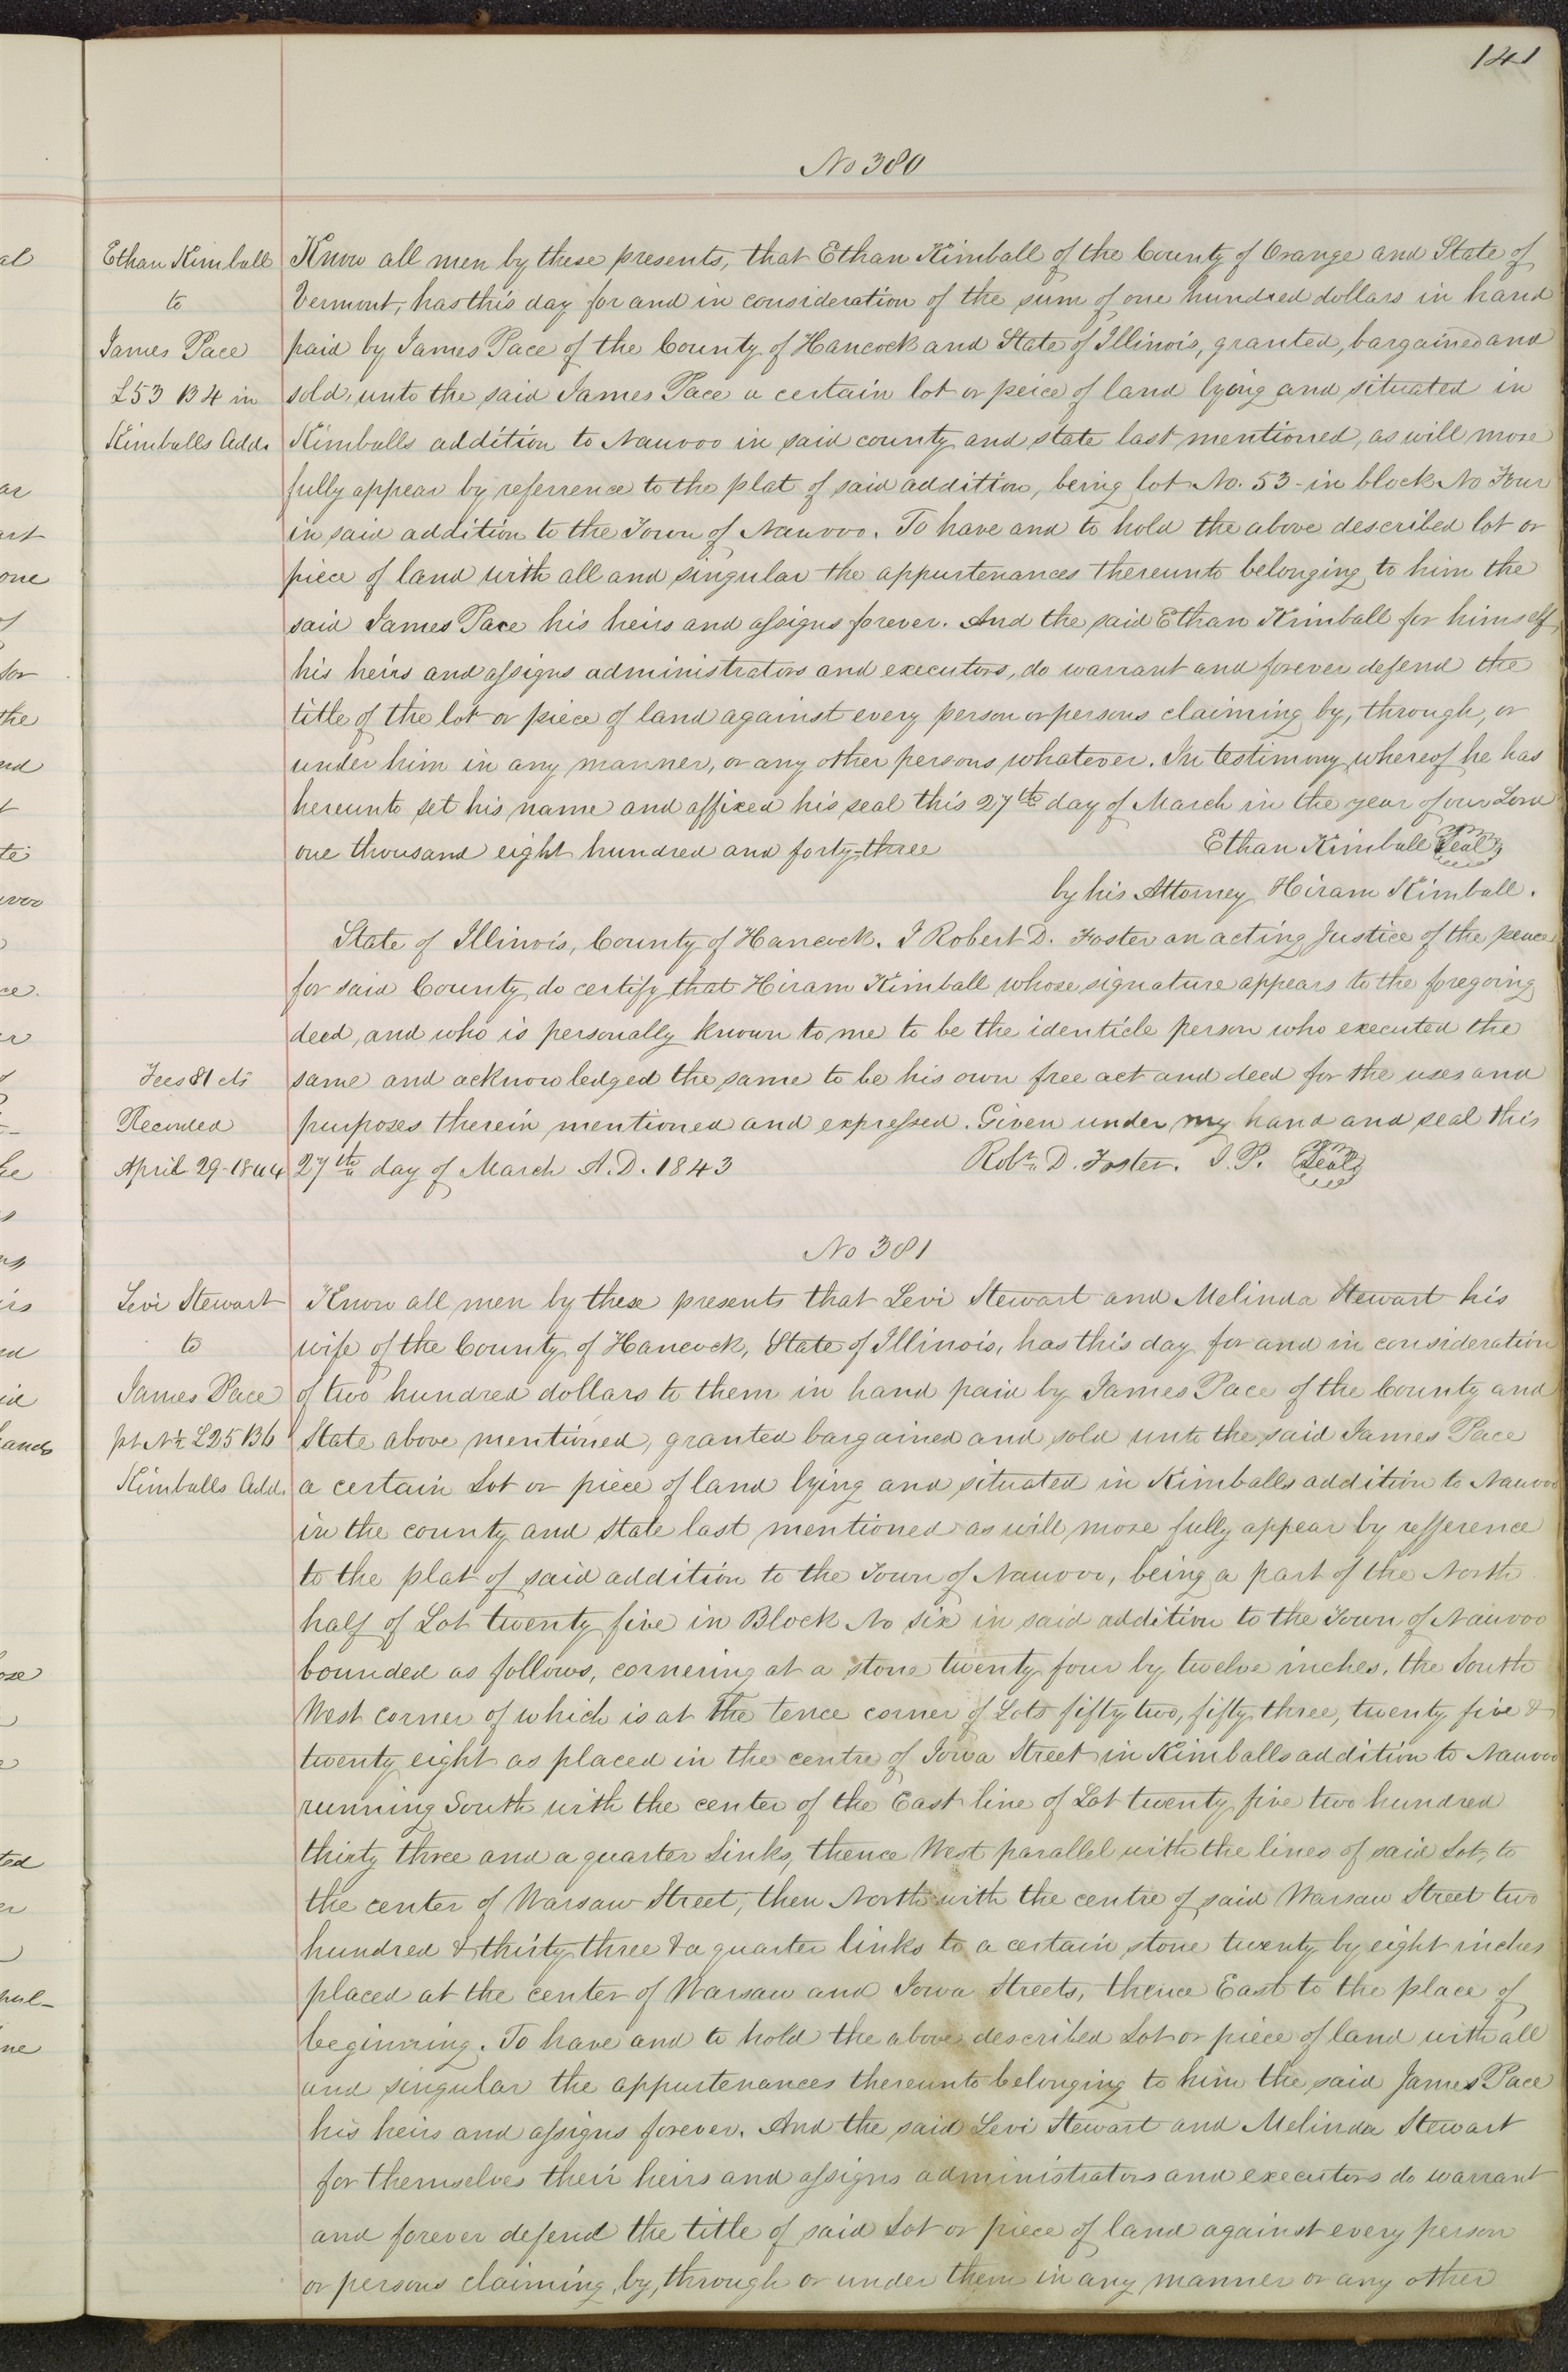 141
No 380
Ethan Kimball
to
James Pace
L53 B4 in
Kimballs Add.
Know all men by these presents, that Ethan Kimball of the County of Orange and State of
Vermont, has this day for and in consideration of the sum of one hundred dollars in hand
paid by James Pace of the County of Hancock and State of Illinois, granted, bargained and
sold, unto the said James Pace a certain lot or peice of land lying and situated in
Kimballs addition to Nauvoo in said county and state last mentioned, as will more
fully appear by referrence to the plat of said addition, being lot No. 53 - in block No Four
in said addition to the Town of Nauvoo. To have and to hold the above described lot or
piece of land with all and singular the appurtenances thereunto belonging to him the
said James Pace his heirs and assigns forever. And the said Ethan Kimball for himself
his heirs and assigns administrators and executors, do warrant and forever defend the
title of the lot or piece of land against every person or persons claiming by, through, or
under him in any manner, or any other persons whatever. In testimony whereof he has
hereunto set his name and affixed his seal this 27th day of March in the year of our Lord
one thousand eight hundred and forty-three Ethan Kimball Seal
by his Attorney Hiram Kimball.
State of Illinois, County of Hancock. I Robert D. Foster an acting Justice of the peace
for said County do certify that Hiram Kimball whose signature appears to the foregoing
deed, and who is personally known to me to be the identicle person who executed the
same and acknowledged the same to be his own free act and deed for the uses and
purposes therein mentioned and expressed. Given under my hand and seal this
27th day of March A.D. 1843 Robt. D. Foster. J.P. Seal
Fees 81 cts
Recorded
April 29-1844
No 381
Levi Stewart
to
James Pace
pt N½ L25 B6
Kimballs Add.
Know all men by these presents that Levi Stewart and Melinda Stewart his
wife of the County of Hancock, State of Illinois, has this day for and in consideration
of two hundred dollars to them in hand paid by James Pace of the County and
State above mentioned, granted bargained and sold unto the said James Pace
a certain Lot or piece of land lying and situated in Kimballs addition to Nauvoo
in the county and state last mentioned as will more fully appear by refference
to the plat of said addition to the Town of Nauvoo, being a part of the North
half of Lot twenty five in Block No six in said addition to the Town of Nauvoo
bounded as follows, cornering at a stone twenty four by twelve inches, the South
West corner of which is at the fence corner of Lots fifty two, fifty three, twenty five &
twenty eight as placed in the centre of Iowa Street in Kimballs addition to Nauvoo
running South with the center of the East line of Lot twenty five two hundred
thirty three and a quarter Links, thence West parallel with the lines of said Lot, to
the center of Warsaw Street, then North with the centre of said Warsaw Street two
hundred & thirty three & a quarter links to a certain stone twenty by eight inches
placed at the center of Warsaw and Iowa Streets, thence East to the place of
beginning. To have and to hold the above described Lot or piece of land with all
and singular the appurtenances thereunto belonging to him the said James Pace
his heirs and assigns forever. And the said Levi Stewart and Melinda Stewart
for themselves their heirs and assigns administrators and executors do warrant
and forever defend the title of said Lot or piece of land against every person
or persons claiming by, through or under them in any manner or any other